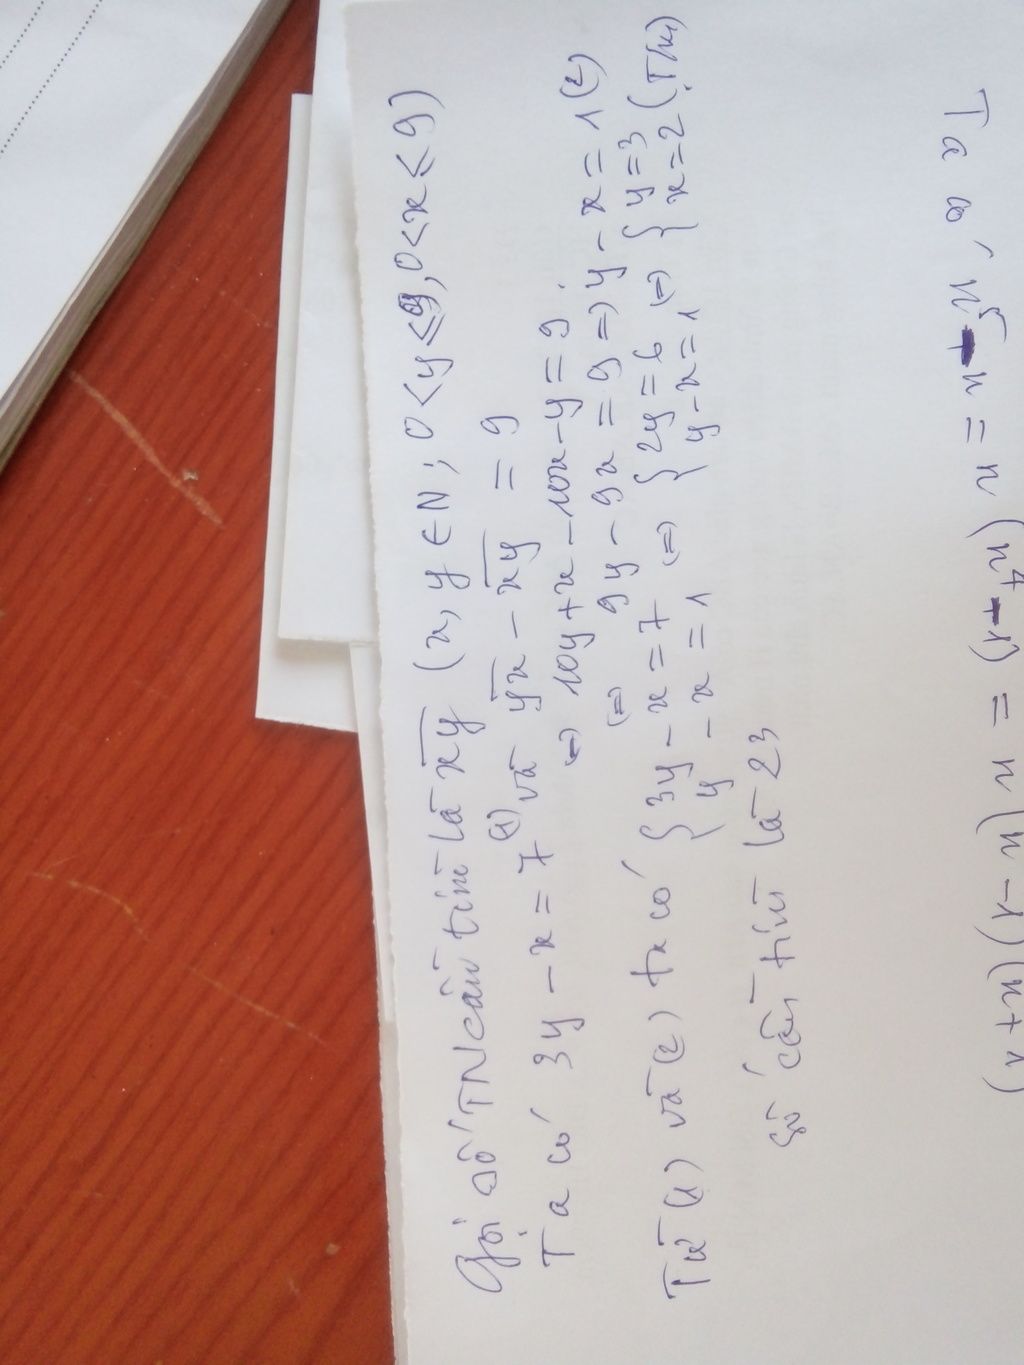 Gọi số TN cần tìm là x̅y̅ (x, y ∈ N; 0 < y ≤ 9, 0 < x ≤ 9)
Ta có 3y - x = 7 (1) và y̅x̅ - x̅y̅ = 9
⇔ 10y + x - 10x - y = 9
⇔ 9y - 9x = 9 ⇒ y - x = 1 (2)
Từ (1) và (2) ta có { 3y - x = 7 ⇔ { 2y = 6 ⇔ { y = 3
y - x = 1 y - x = 1 x = 2 (T/m)
Số cần tìm là 23
Ta có